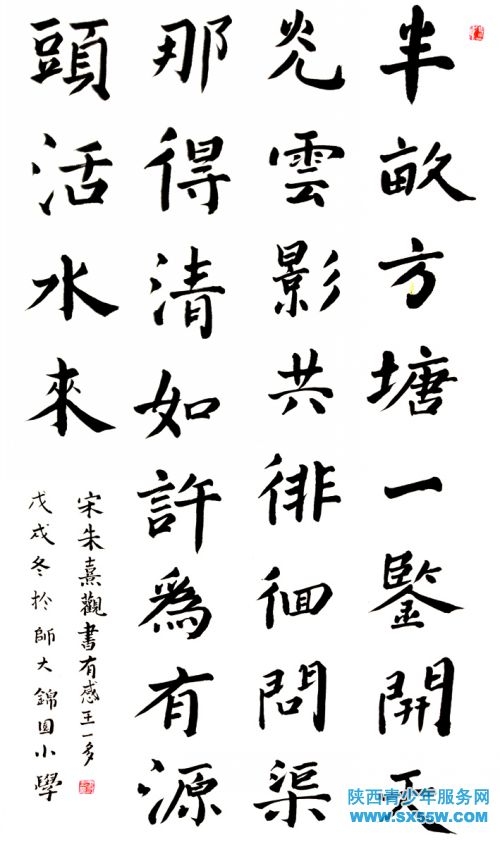 半畝方塘一鑒開天
光雲影共徘徊問渠
那得清如許爲有源
頭活水來
宋朱熹觀書有感王一多
戊戌冬於師大錦園小學
陕西青少年服务网
www.sx55w.com